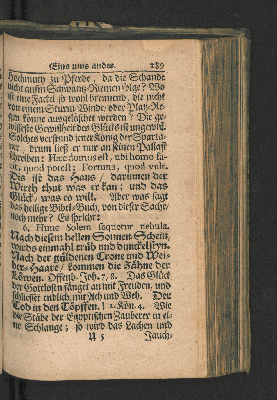 Eins ums ander. 289
Hochmuth zu Pferde, da die Schande
nicht auffm Schwantz-Riemen säße? Wo
ist eine Fackel so wohl brennend, die nicht
von einem Sturm-Winde oder Platz-Re-
gen könne ausgelöschet werden? Die ge-
wisseste Gewißheit des Glücks ist ungewiß.
Solches verstund jener König der Sparta-
ner, drum ließ er nur an seinen Pallast
schreiben: Hæc domus est, ubi homo fa-
cit, quod potest; Fortuna, quod vult.
Dis ist das Haus, darinnen der
Wirth thut was er kan; und das
Glück, was es will. Aber was sagt
das heilige Bibel-Buch, von dieser Sache
noch mehr? Es spricht:
6. Hunc Solem sequetur nebula.
Nach diesem hellen Sonnen-Schein,
wirds einmahl trüb und dunckel seyn.
Nach der güldenen Crone und Wei-
ber-Haare, kommen die Zähne der
Löwen. Offenb. Joh. 7, 8. Das Glück
der Gottlosen fängt an mit Freuden, und
schliesset endlich mit Ach und Weh. Der
Tod in den Töpffen. 2. Kön. 4. Wie
die Stäbe der Egyptischen Zauberer in ei-
ne Schlange; so wird das Lachen und
U 5 Jauch-